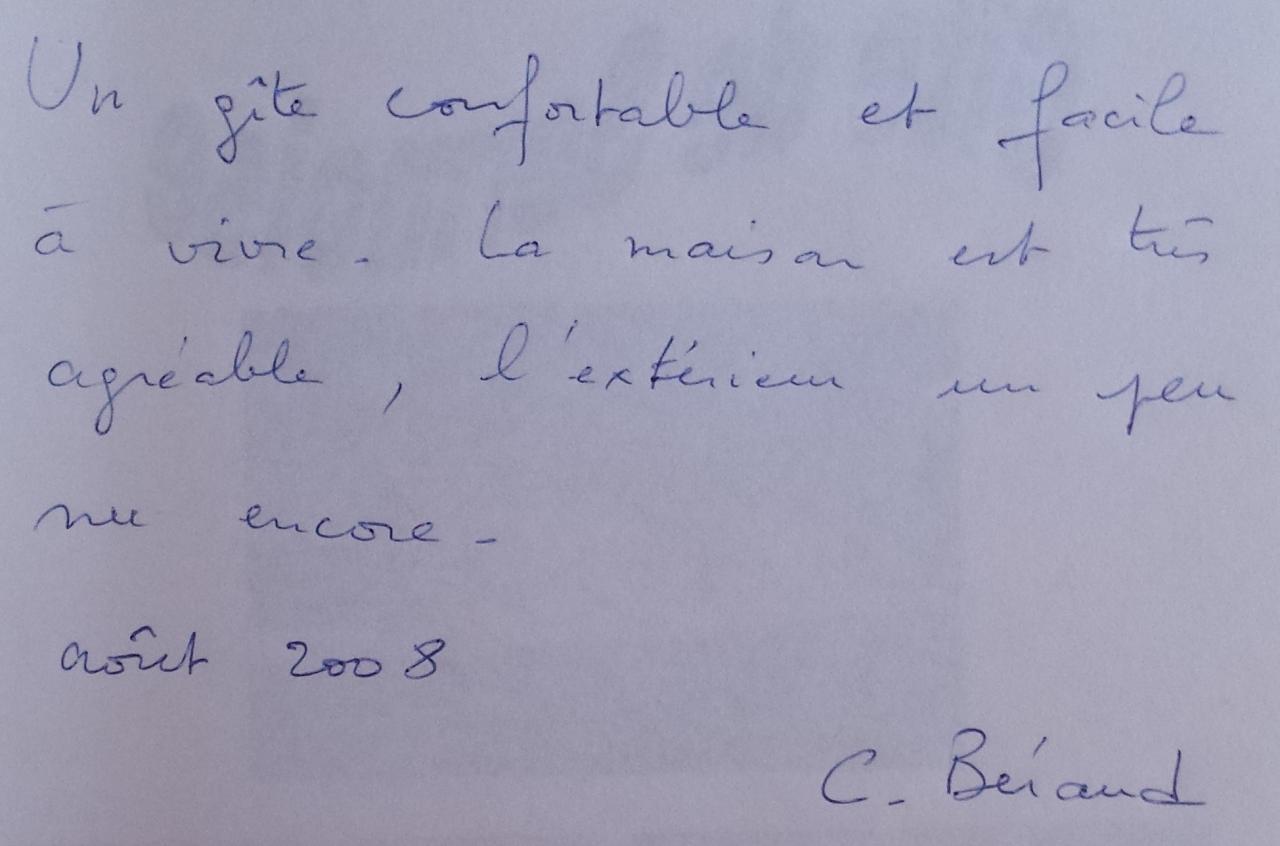 Un gîte confortable et facile
à vivre. La maison est très
agréable, l'extérieur un peu
nu encore.
août 2008
C. Béraud